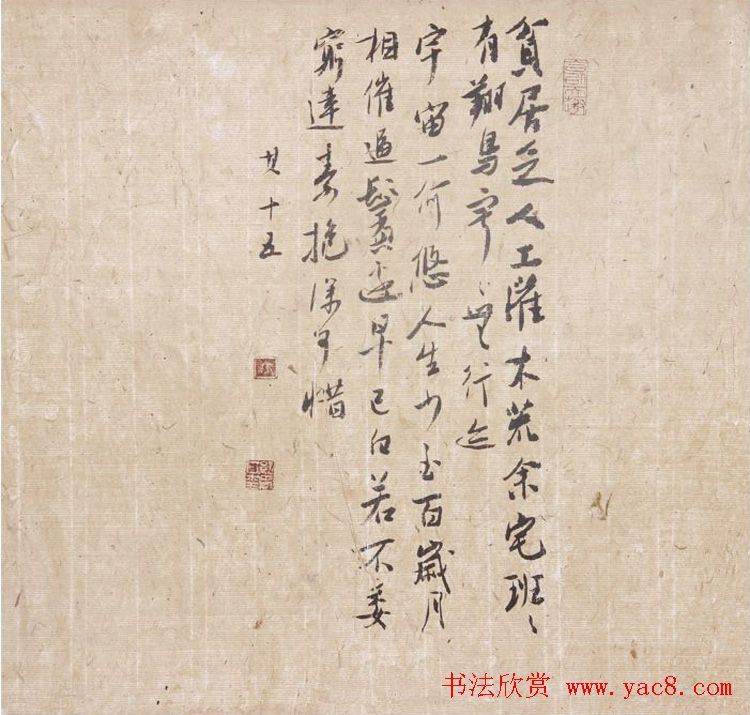 貧居乏人工灌木荒余宅班〻
有翔鳥寂〻無行迹
宇宙一何悠人生少至百歲月
相催逼鬢邊早已白若不委
窮達素抱深可惜
其十五
书法欣赏 www.yac8.com